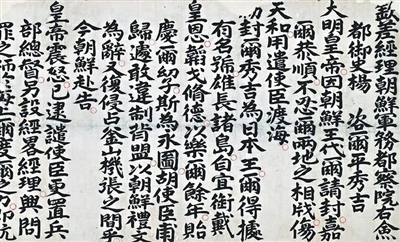 欽差經理朝鮮軍務都察院右僉
都御史楊 咨爾平秀吉
大明皇帝因朝鮮王代爾請封嘉
爾恭順不忍爾兩地之相戕傷
天和用遣使臣渡海
勑封爾秀吉為日本王爾得據
有名號雄長諸島自宜銜戴
皇恩韜戈脩德以樂爾餘年貽
慶爾紹斯為永圖胡使臣甫
歸遽敢違制背盟以朝鮮禮文
為辭又復侵占釜山機張之間乎
今朝鮮赴告
皇帝震怒逮譴使臣更置兵
部總督另設經畧經理興問
罪之師爾度爾之力